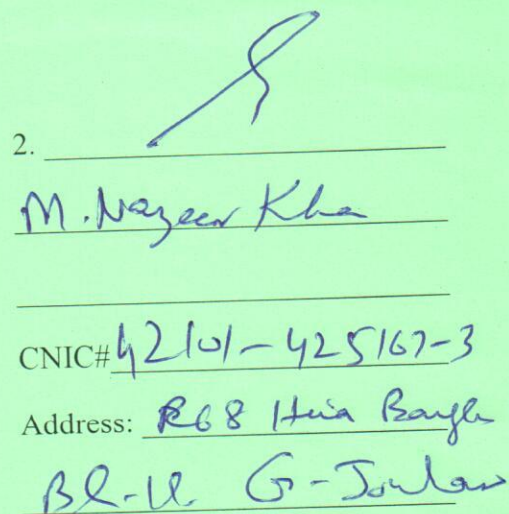 2.
M. Nazeer Kha
CNIC# 42101-425167-3
Address: R68 Hina Bangle
Bl-11. G-Jouhar